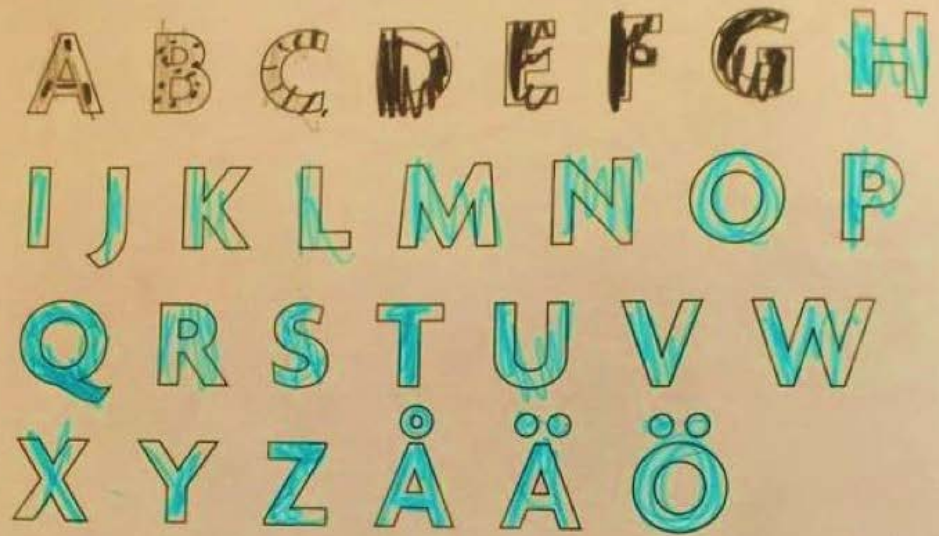 A B C D E F G H
I J K L M N O P
Q R S T U V W
X Y Z Å Ä Ö